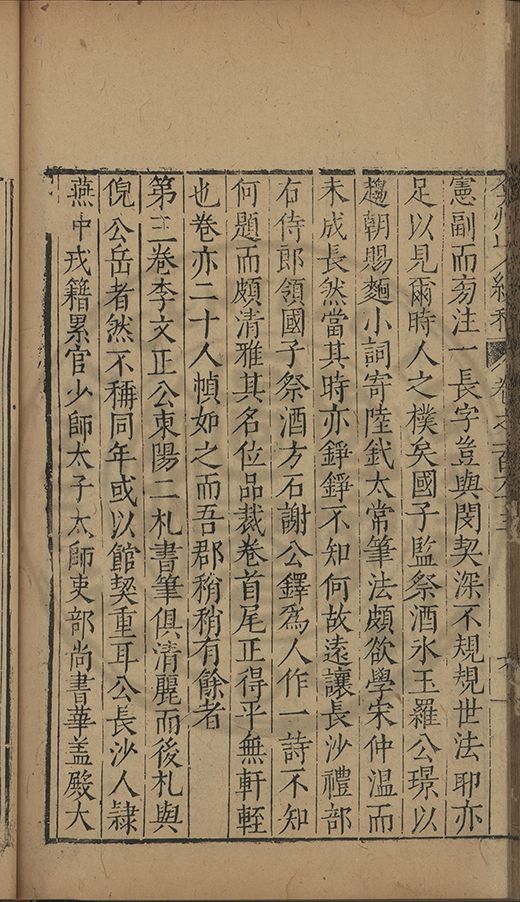 憲副而旁注一長字豈與閔契深不規規世法耶亦
足以見爾時人之樸矣國子監祭酒氷玉羅公璟以
趨朝賜麵小詞寄陸釴太常筆法頗欲學宋仲温而
未成長然當其時亦錚錚不知何故遠讓長沙禮部
右侍郎領國子祭酒方石謝公鐸爲人作一詩不知
何題而頗清雅其名位品裁卷首尾正得平無軒輊
也卷亦二十人幀如之而吾郡稍稍有餘者
第三卷李文正公東陽二札書筆俱清麗而後札與
倪公岳者然不稱同年或以館契重耳公長沙人隷
燕中戎籍累官少師太子太師吏部尚書華盖殿大